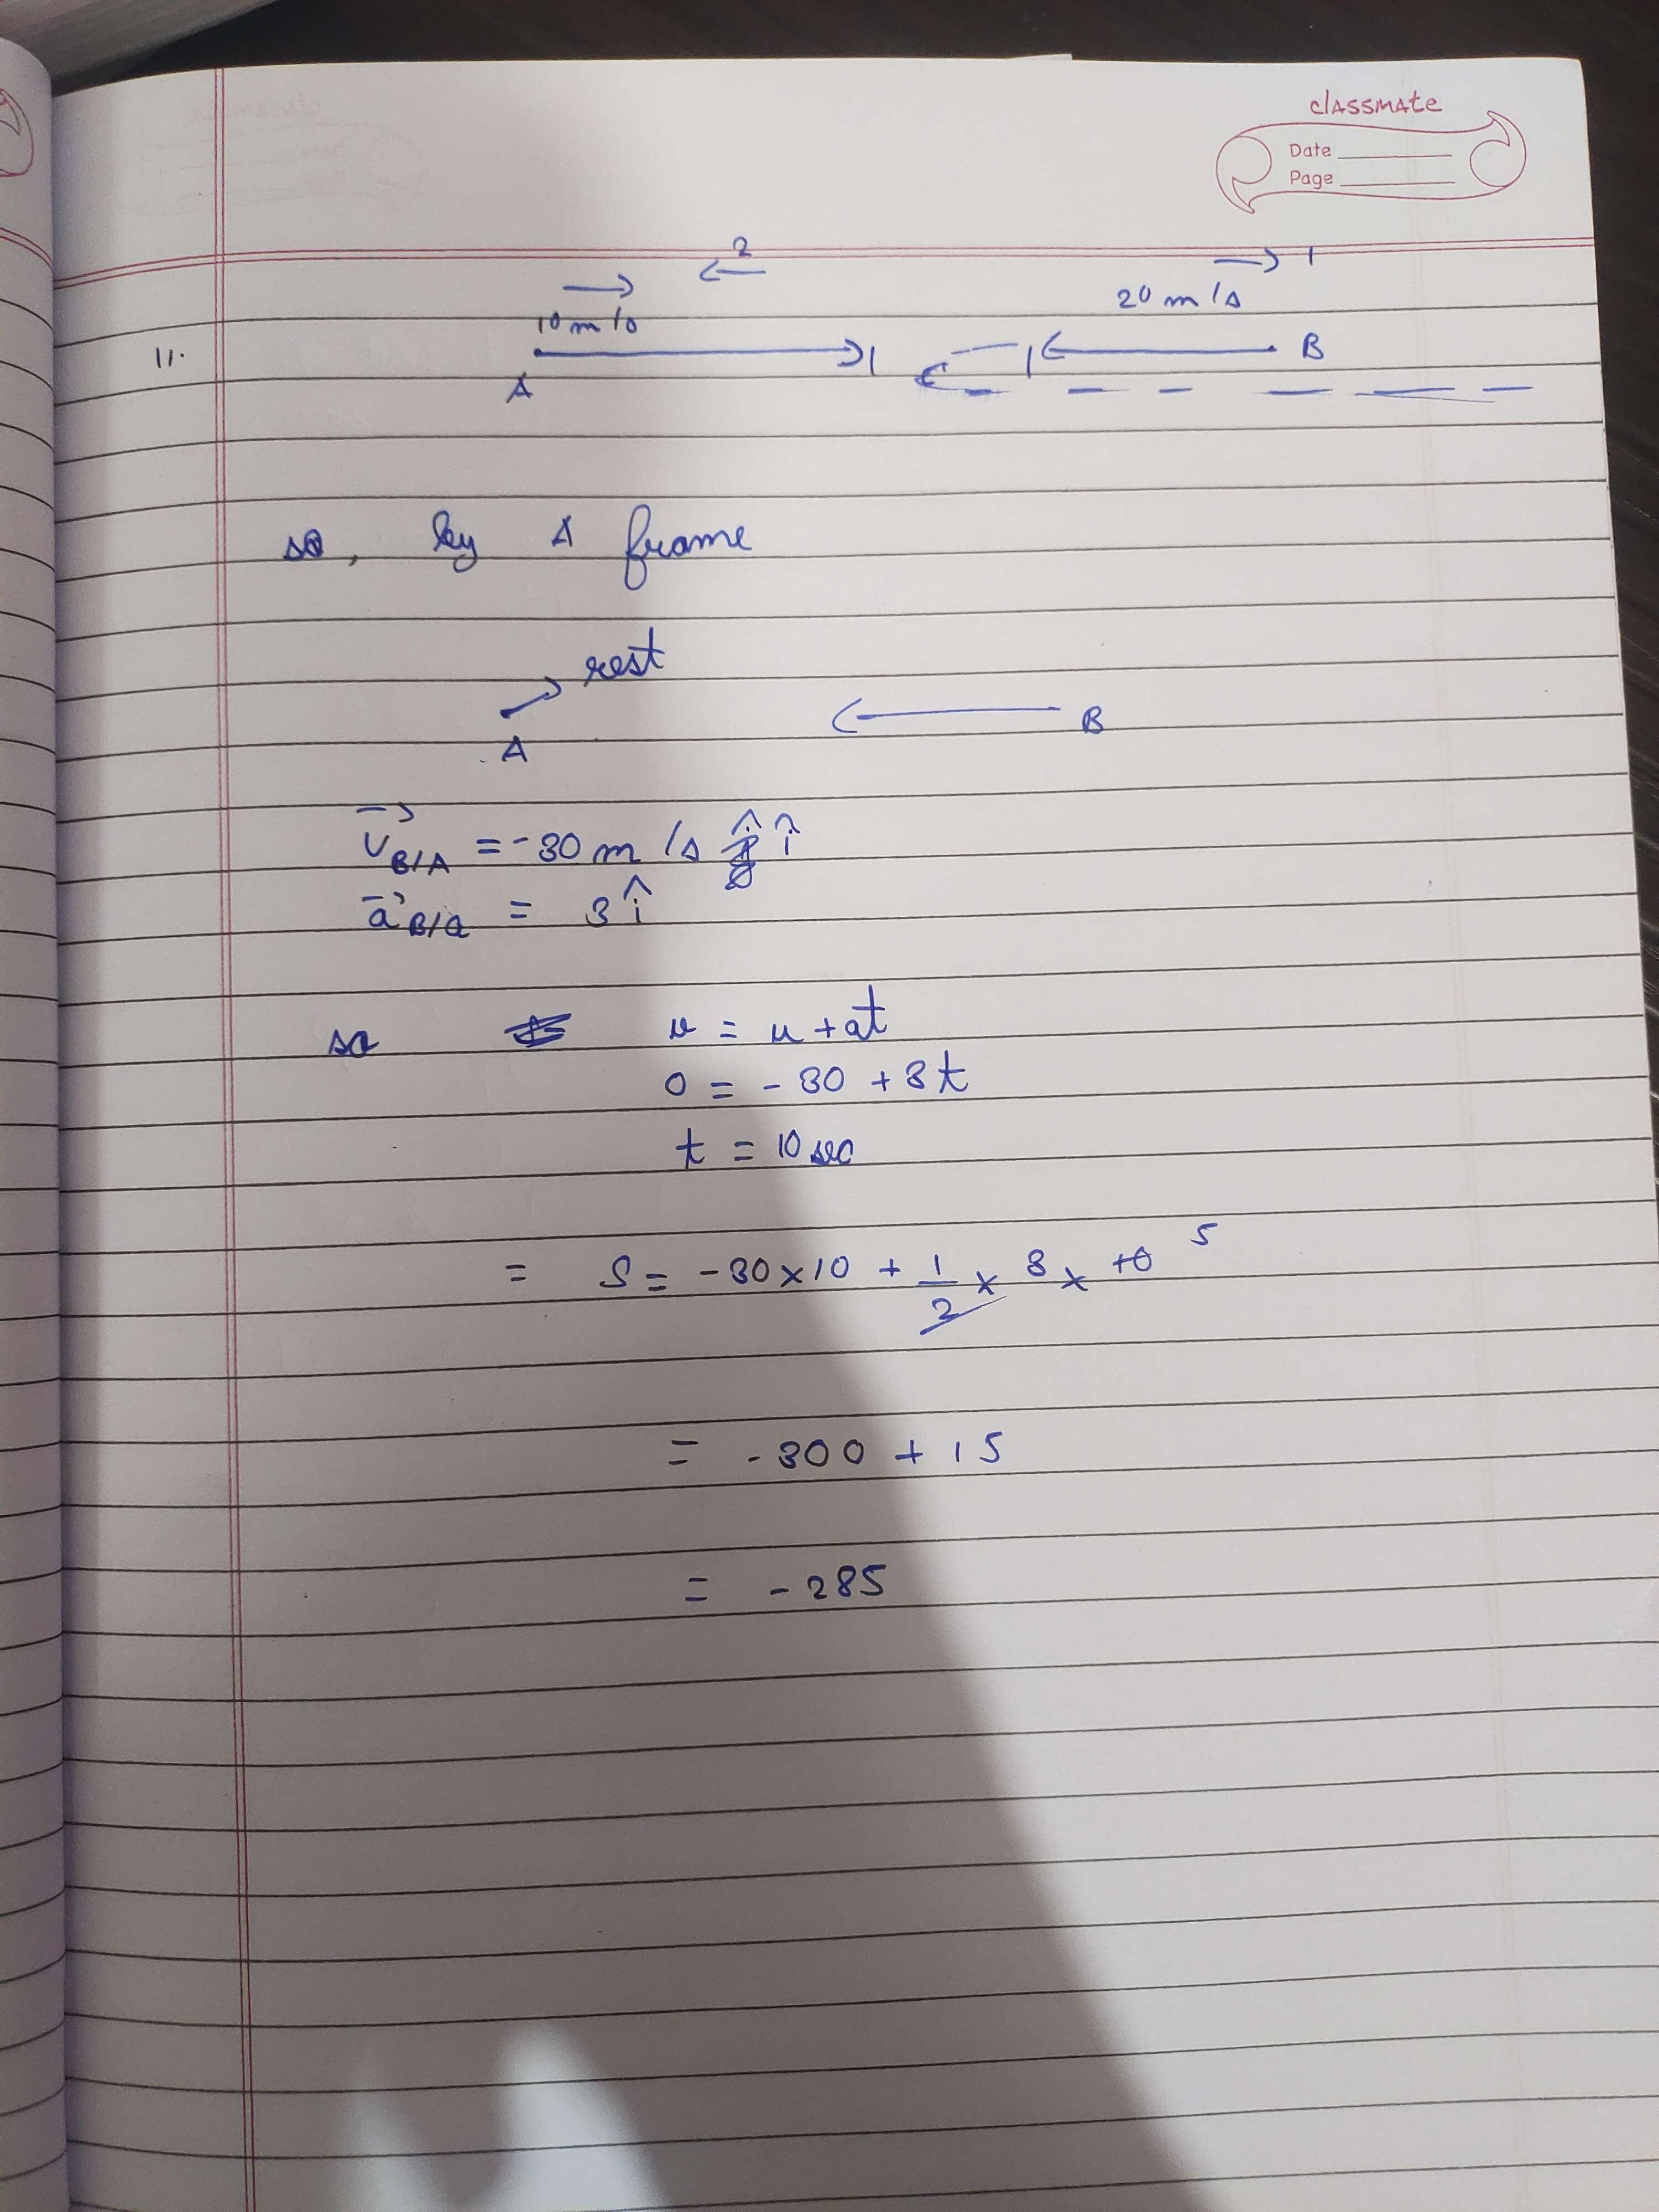 classmate
Date
Page
2
1
10 m/s
20 m/s
11.
A
B
so, by A frame
rest
A
B
v⃗ B/A = -30 m/s î
a⃗ B/a = 3 î
so v = u + at
0 = -30 + 3t
t = 10 sec
= S = -30 × 10 + 1/2 × 3 × 10 5
= -300 + 15
= -285